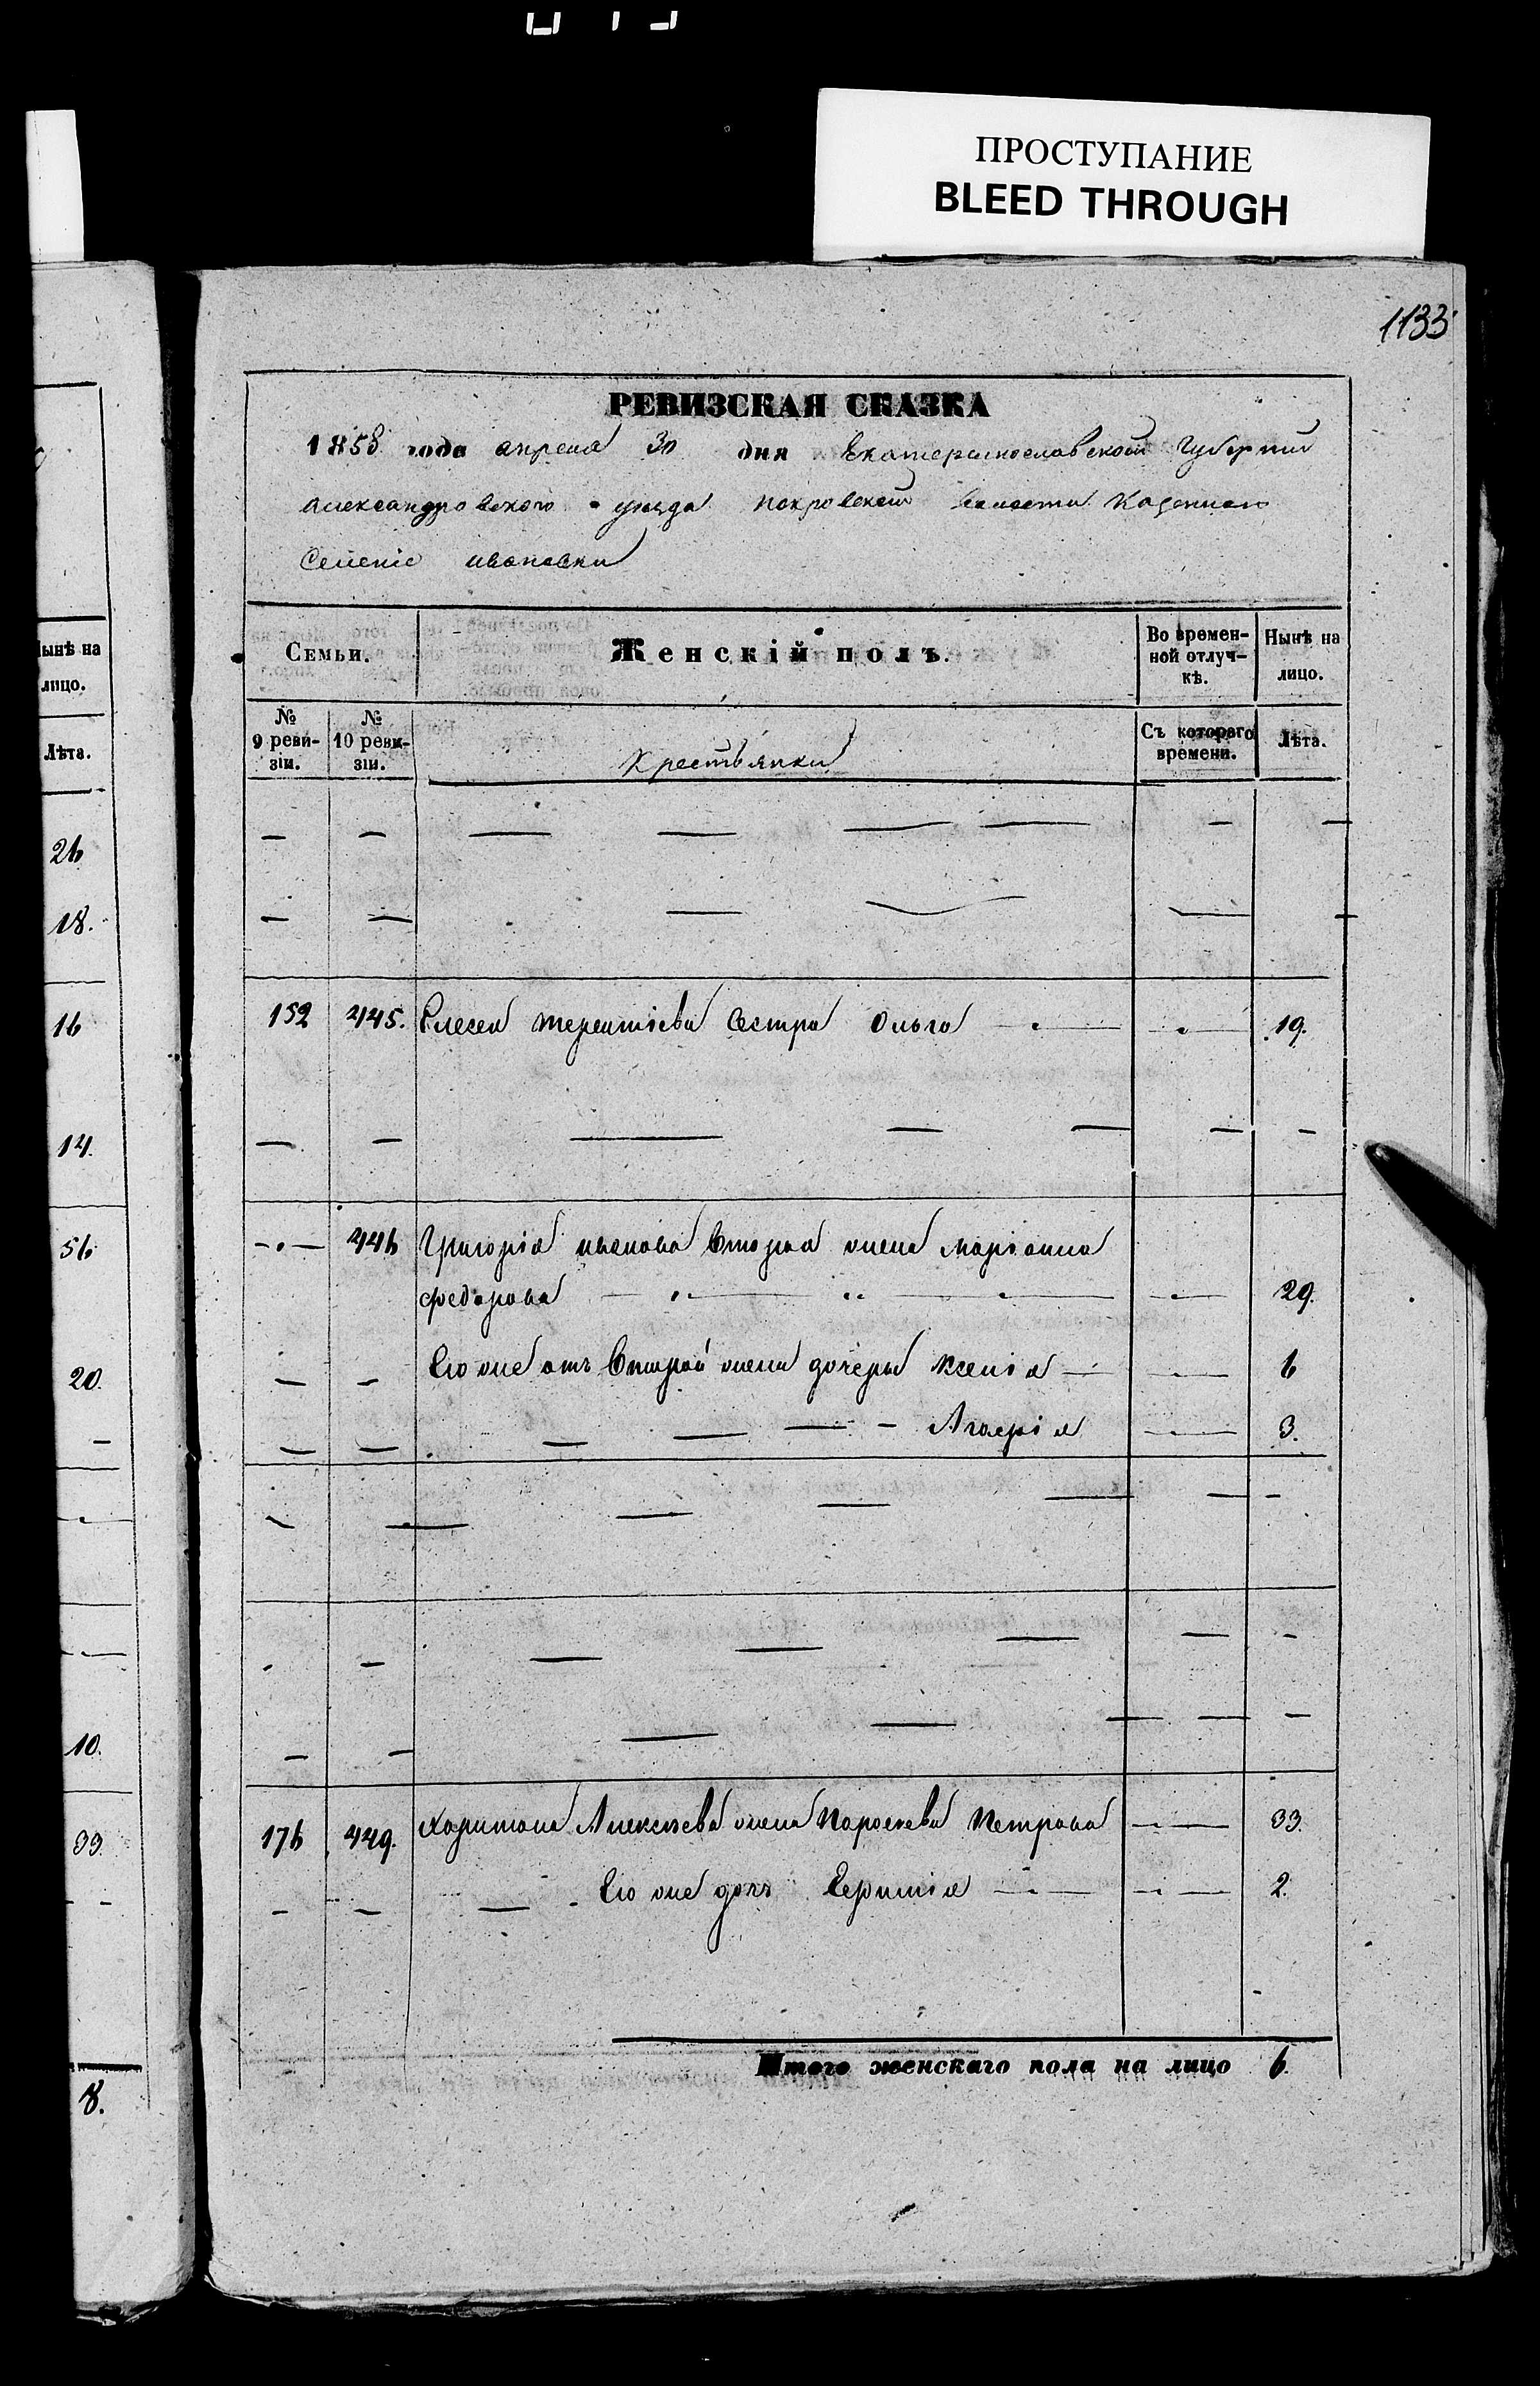 ПРОСТУПАНИЕ
BLEED THROUGH
1133
РЕВИЗСКАЯ СКАЗКА
1858 года апреля 30 дня Екатеринославской Губернии
Александровского уезда Покровской волости Казенного
Селенiе Ивановки
Семьи.
Женскiй полъ.
Во времен-
ной отлуч-
кѣ.
Нынѣ на
лицо.
№
9 реви-
зiи.
№
10 реви-
зiи.
Крестьянки
Съ котораго
времени.
Лѣта.
152 445. Елесея терентiева Сестра Ольга 19.
446 Григорiя иванова вторая жена Марiанна
федорова 29.
Его же отъ второй жены дочери Ксенiя 6
3.
176 449. Харитона Алексѣева жена Парасева Петрова 33.
Его же дочь 2.
Итого женскаго пола на лицо 6.
ынѣ на
лицо.
Лѣта.
26
18.
16
14.
56
20.
10.
33.
8.